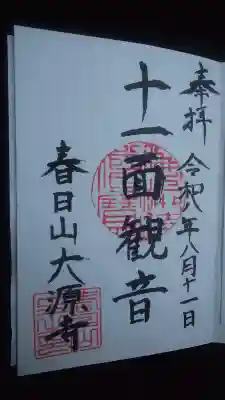 奉拝 令和八年八月十一日
十一面観音
春日山大源寺